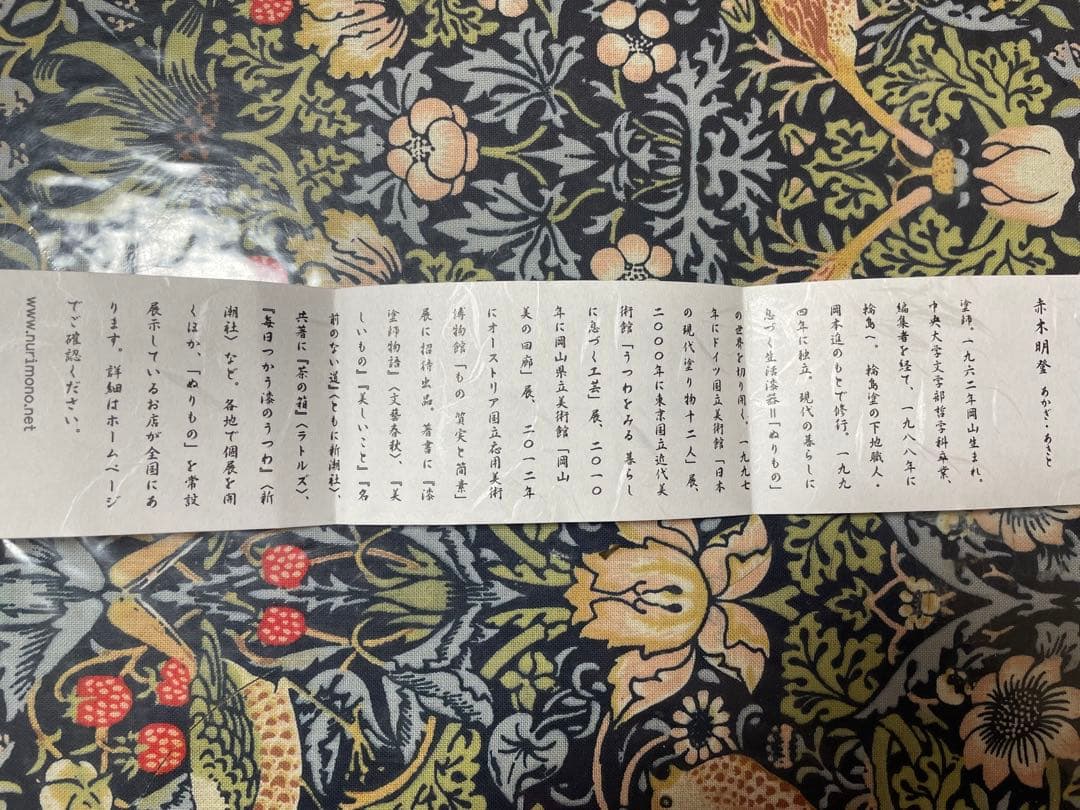 赤木明登 あかぎ・あきと
塗師。一九六二年岡山生まれ。
中央大学文学部哲学科卒業、
編集者を経て、一九八八年に
輪島へ。輪島塗の下地職人・
岡本進のもとで修行。一九九
四年に独立。現代の暮らしに
息づく生活漆器＝「ぬりもの」
の世界を切り開く。一九九七
年にドイツ国立美術館「日本
の現代塗り物十二人」展、
二〇〇〇年に東京国立近代美
術館「うつわをみる 暮らし
に息づく工芸」展、二〇一〇
年に岡山県立美術館「岡山
美の回廊」展、二〇一二年
にオーストリア国立応用美術
博物館「もの 質実と簡素」
展に招待出品。著書に『漆
塗師物語』（文藝春秋）、『美
しいもの』『美しいこと』『名
前のない道』（ともに新潮社）、
共著に『茶の箱』（ラトルズ）、
『毎日つかう漆のうつわ』（新
潮社）など。各地で個展を開
くほか、「ぬりもの」を常設
展示しているお店が全国にあ
ります。詳細はホームページ
でご確認ください。
www.nurimono.net